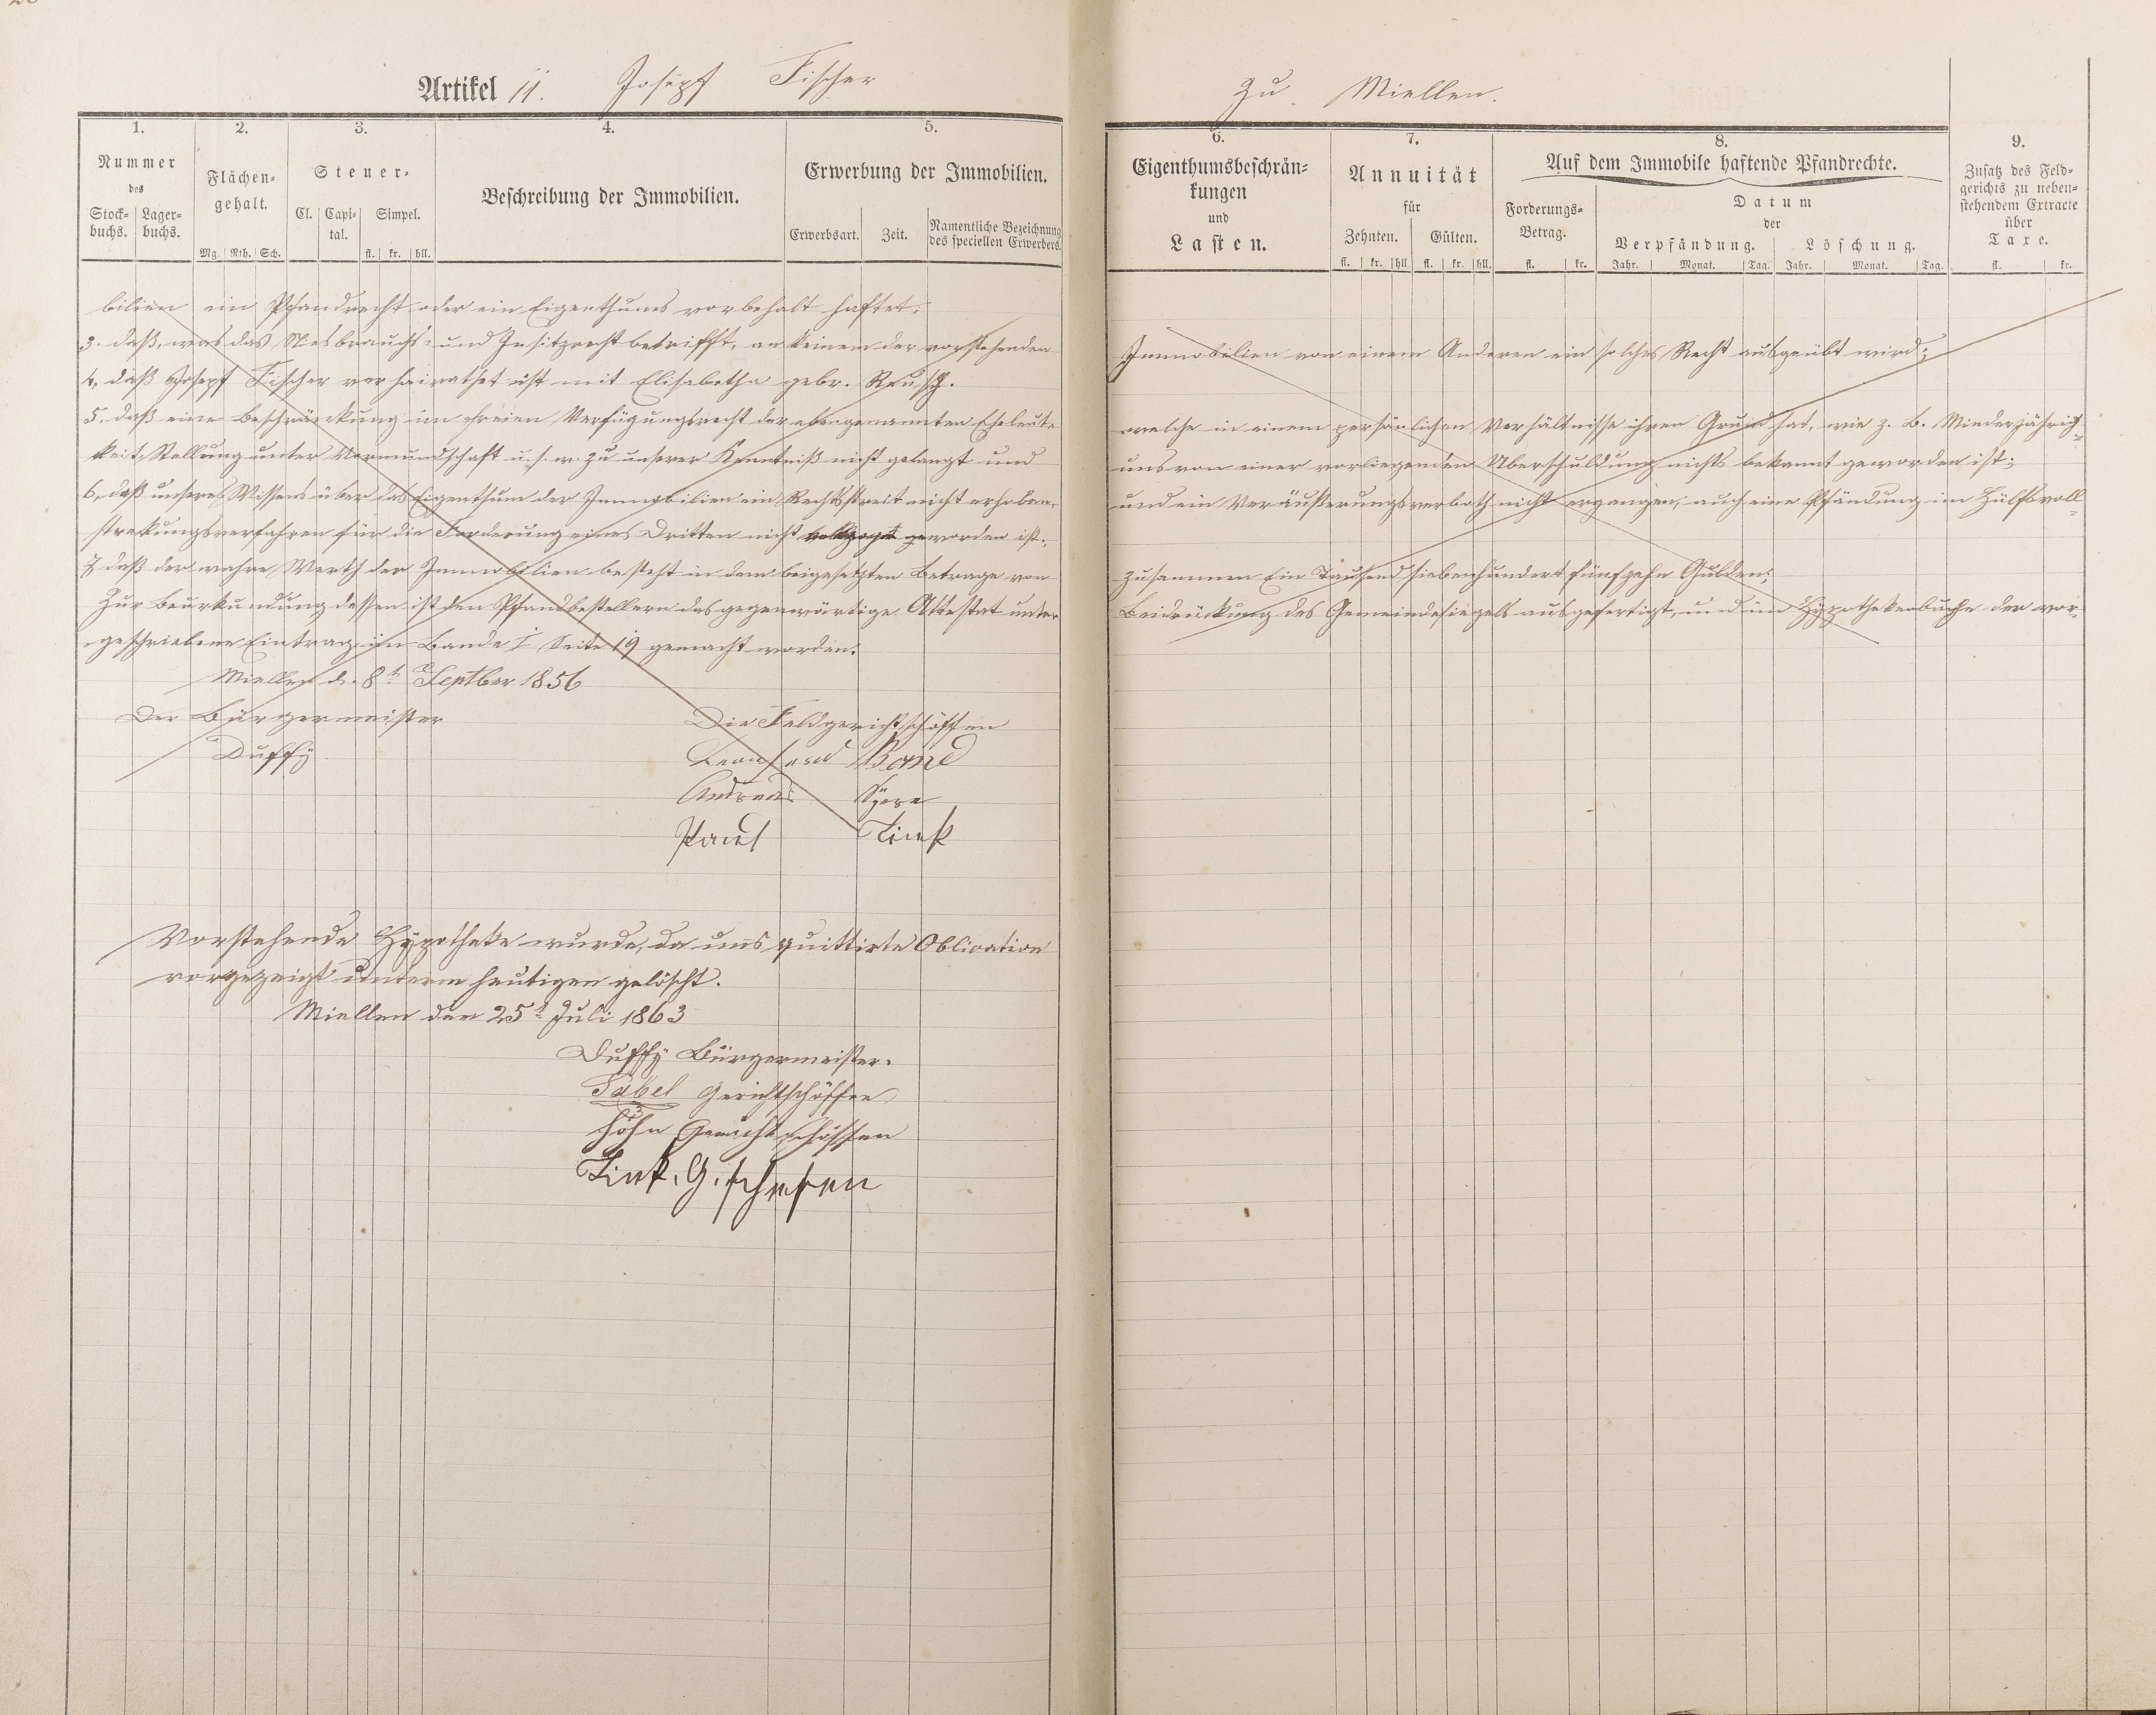 Artikel 11. Joseph Fischer
zu Miellen.
1. 2. 3. 4. 5.
Nummer des
Stock- buchs. Lager- buchs.
Flächen- gehalt.
Mg. Rth. Sch.
Steuer-
Cl. Capi- tal. Simpel.
fl. kr. hll.
Beschreibung der Immobilien.
Erwerbung der Immobilien.
Erwerbsart. Zeit. Namentliche Bezeichnung des speciellen Erwerbers.
6. 7. 8. 9.
Eigenthumsbeschrän- kungen
und
Lasten.
Annuität
für
Zehnten. Gülten.
fl. kr. hll fl. kr. hll.
Auf dem Immobile haftende Pfandrechte.
Forderungs- Betrag.
fl. kr.
Datum
der
Verpfändung. Löschung.
Jahr. Monat. Tag. Jahr. Monat. Tag.
Zusatz des Feld-
gerichts zu neben-
stehendem Extracte
über
Taxe.
fl. kr.
bilien ein Pfandrecht oder ein Eigenthums vorbehalt haftet;
3. daß, was das Niesbrauchs- und Insitzrecht betrifft, an keinem der vorstehenden Immobilien von einem Anderen ein solches Recht ausgeübt wird;
4, daß Joseph Fischer verheirathet ist mit Elisabetha gebr. Reusch.
5, daß eine Beschränkung im freien Verfügungsrecht der obengenannten Eheleute welche in einem persönlichen Verhältnisse ihren Grund hat, wie z. B. Minderjährig-
keit, Stellung unter Vormundschaft u. s. w. zu unserer Kenntniß nicht gelangt und uns von einer vorliegenden Uberschuldung nichts bekannt geworden ist;
6, daß unseres Wissens über das Eigenthum der Immobilien ein Rechtsstreit nicht erhoben, und ein Veräußerungsverboth nicht ergangen, auch eine Pfändung im Hülfsvoll-
streckungsverfahren für die Forderung eines Dritten nicht geworden ist;
7, daß der wahre Werth der Immobilien besteht in dem beigesetzten Betrage von zusammen Ein Tausend siebenhundert fünfzehn Gulden;
Zur Beurkundung dessen ist den Pfandbestellern das gegenwärtige Attestat unter Beidrückung des Gemeindesiegels ausgefertigt, und im Hypothekenbuche der vor-
geschriebene Eintrag im Bande I Seite 19 gemacht worden.
Miellen d. 8t Septber 1856
Der Bürgermeister Die Feldgerichtschöffen
Duffÿ
Andreas
Paul Fink
Vorstehende Hÿpotheke wurde, da uns quittirte Obligation
vorgezeigt unterm heutigen gelöscht.
Miellen den 25t Juli 1863
Duffÿ Bürgermeister.
Sabel Gerichtschöffen
Höhn Gerichtschöffen
Fink. G. schefen